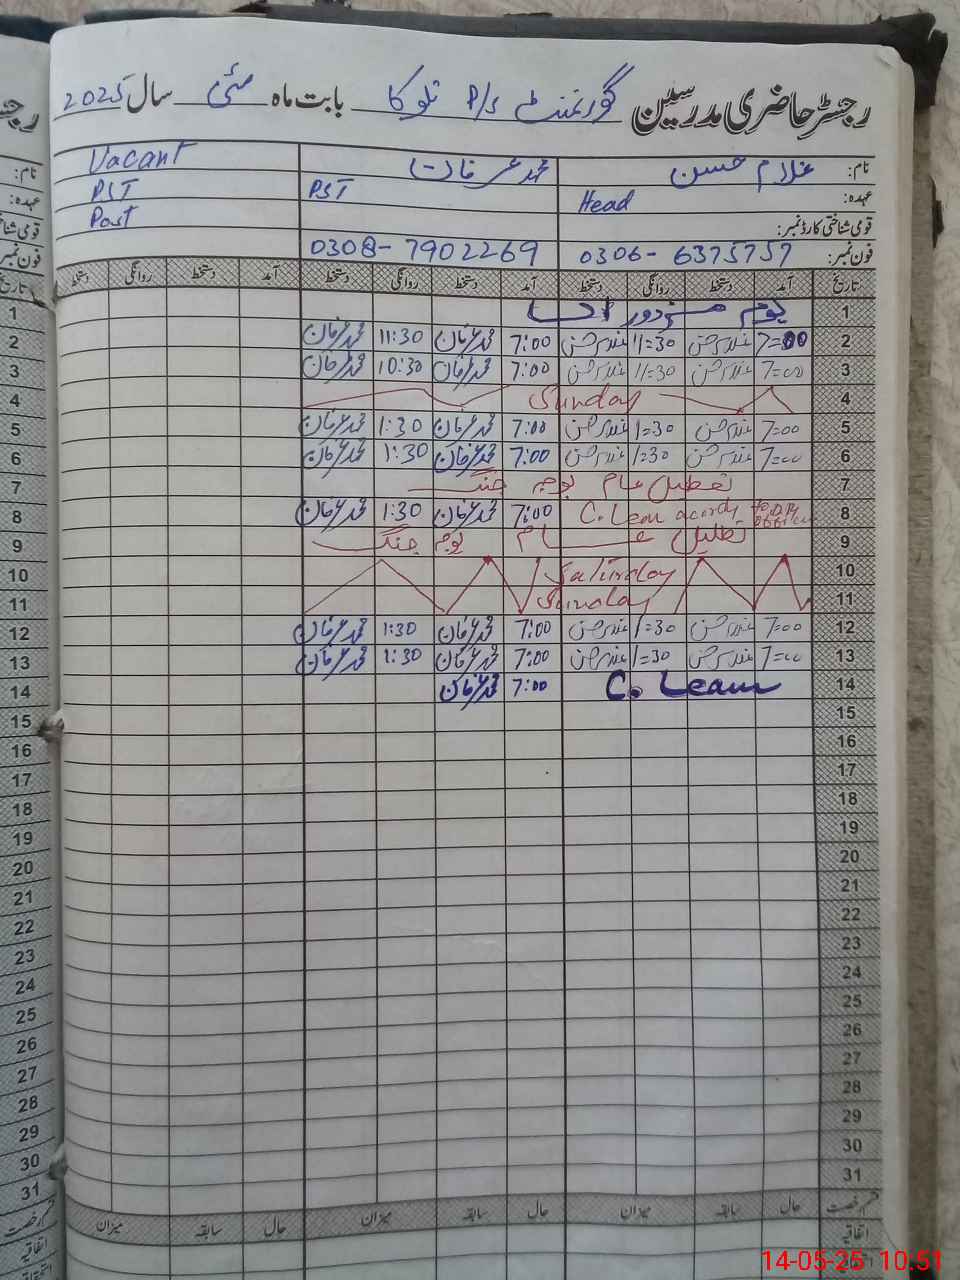 رجسٹر حاضری مدرسین گورنمنٹ P/S تلوکا بابت ماہ مئی سال 2025
نام: غلام حسن محمد عرفان Vacant
عہدہ: Head PST PST
قومی شناختی کارڈ نمبر: Post
فون نمبر: 0306-6375757 0308-7902269
تاریخ آمد دستخط روانگی دستخط آمد دستخط روانگی دستخط آمد دستخط روانگی دستخط
1 یوم مزدور
2 7=00 غلام حسن 11=30 غلام حسن 7:00 محمد عرفان 11:30 محمد عرفان
3 7=00 غلام حسن 11=30 غلام حسن 7:00 محمد عرفان 10:30 محمد عرفان
4 Sunday
5 7=00 غلام حسن 1=30 غلام حسن 7:00 محمد عرفان 1:30 محمد عرفان
6 7=00 غلام حسن 1=30 غلام حسن 7:00 محمد عرفان 1:30 محمد عرفان
7 تعطیل عام بوجہ جنگ
8 C. Leav 7:00 محمد عرفان 1:30 محمد عرفان
9 تعطیل عام بوجہ جنگ
10 Saturday
11 Sunday
12 7=00 غلام حسن 1=30 غلام حسن 7:00 محمد عرفان 1:30 محمد عرفان
13 7=00 غلام حسن 1=30 غلام حسن 7:00 محمد عرفان 1:30 محمد عرفان
14 C. Leav 7:00 محمد عرفان
15
16
17
18
19
20
21
22
23
24
25
26
27
28
29
30
31
قسم رخصت حال سابقہ میزان حال سابقہ میزان حال سابقہ میزان
اتفاقیہ
14-05-25 10:51